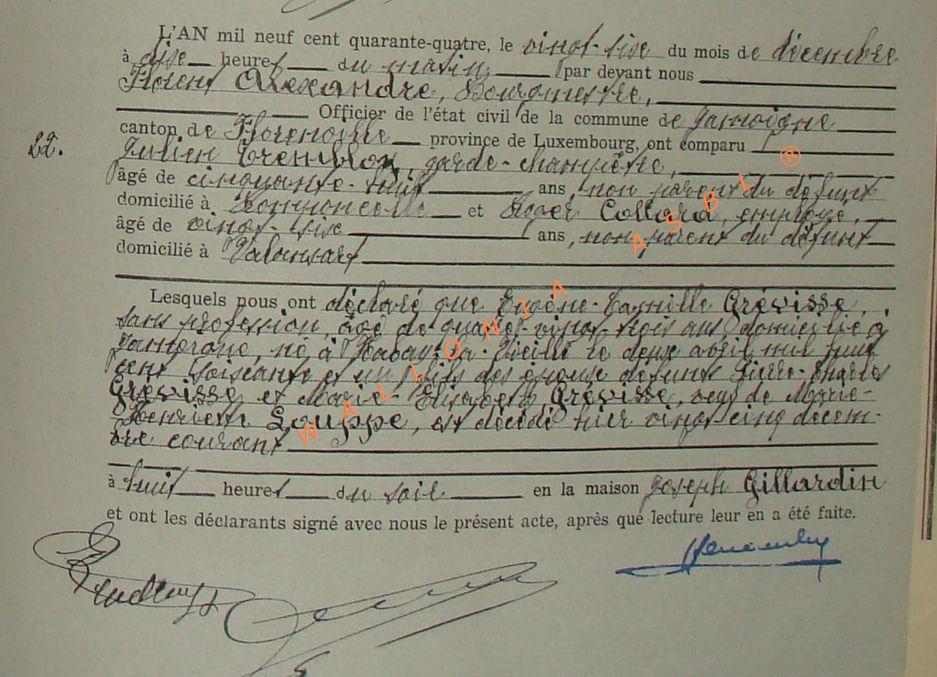 L'AN mil neuf cent quarante-quatre, le vingt-six du mois de décembre
à dix heures du matin par devant nous
Florent Alexandre, Bourgmestre,
Officier de l'état civil de la commune de Jamoigne
22.
canton de Florenville province de Luxembourg, ont comparu
Julien garde-champêtre,
âgé de cinquante-huit ans, non parent du défunt
domicilié à et Roger Collard, employé,
âgé de vingt-six ans, non parent du défunt
domicilié à Valansart
Lesquels nous ont déclaré que Eugène-Camille Grévisse,
sans profession, âgé de quatre-vingt-trois ans, domicilié à
Jamoigne, né à Habay-la-Vieille le deux avril mil huit
cent soixante et un, fils des époux défunts Pierre-Charles
Grévisse et Marie-Elisabeth Grévisse, veuf de Marie-
Louppe, est décédé hier vingt-cinq décem-
bre courant
à huit heures du soir en la maison Joseph Gillardin
et ont les déclarants signé avec nous le présent acte, après que lecture leur en a été faite.
WALLONIA ASBL ®